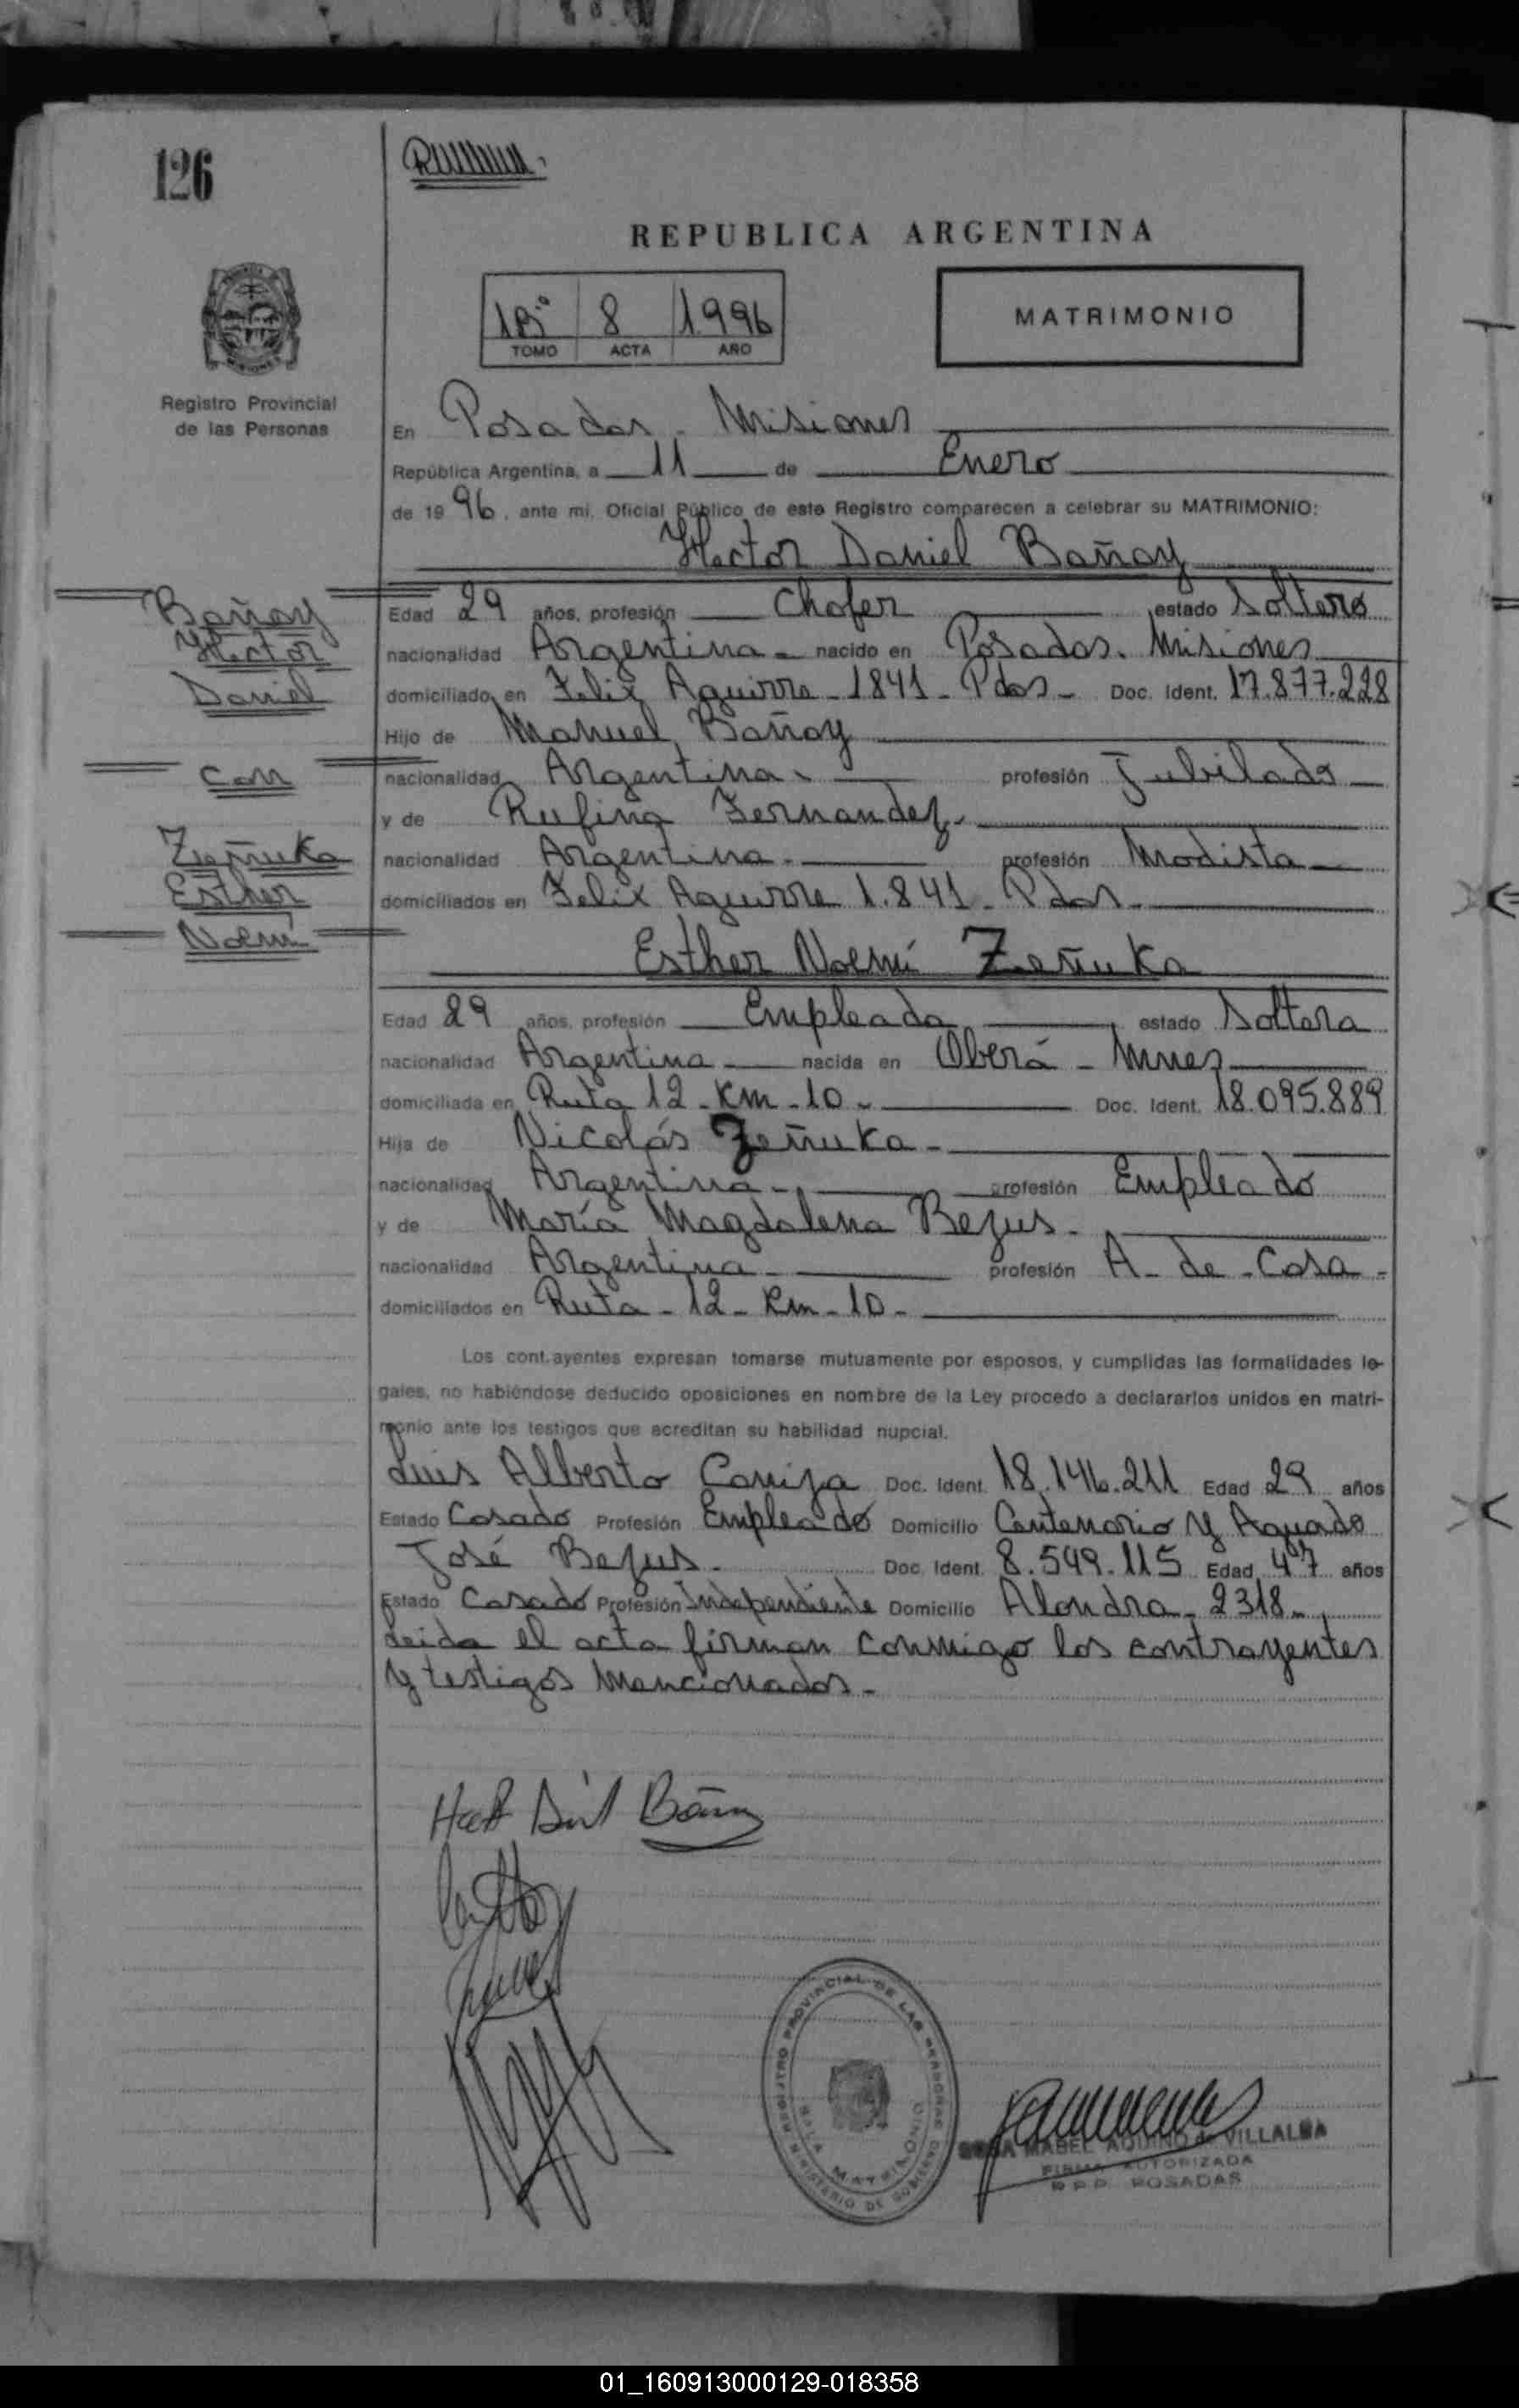 126
REPUBLICA ARGENTINA
1Bº 8 1996
TOMO ACTA AÑO
MATRIMONIO
Registro Provincial
de las Personas
En Posadas - Misiones
República Argentina, a 11 de Enero
de 1996, ante mi, Oficial Público de este Registro comparecen a celebrar su MATRIMONIO:
Hector Daniel Bañay
Edad 29 años, profesión Chofer estado Soltero
nacionalidad Argentina - nacido en Posadas. Misiones
domiciliado en Felix Aguirre - 1841 - Pdas - Doc. Ident. 17.877.228
Hijo de Manuel Bañay
nacionalidad Argentina. profesión Jubilado
y de Rufina Fernandez.
nacionalidad Argentina. profesión Modista
domiciliados en Felix Aguirre 1.841 - Pdas
Bañay
Hector
Daniel
Con
Zeñuka
Esther
Noemí
Esther Noemí Zeñuka
Edad 29 años, profesión Empleada estado Soltera
nacionalidad Argentina nacida en Oberá - Mnes
domiciliada en Ruta 12 - Km - 10 - Doc. Ident. 18.095.889
Hija de Nicolás Zeñuka -
nacionalidad Argentina - profesión Empleado
y de María Magdalena Bezus -
nacionalidad Argentina - profesión A - de - Casa -
domiciliados en Ruta - 12 - Km - 10 -
Los cont.ayentes expresan tomarse mutuamente por esposos, y cumplidas las formalidades le-
gales, no habiéndose deducido oposiciones en nombre de la Ley procedo a declararlos unidos en matri-
monio ante los testigos que acreditan su habilidad nupcial.
Luis Alberto Caniza Doc. Ident. 18.146.211 Edad 29 años
Estado Casado Profesión Empleado Domicilio Centenario y Aguado
José Bezus - Doc. Ident. 8.549.115 Edad 47 años
Estado Casado Profesión Independiente Domicilio Alondra - 2318 -
Leida el acta firman conmigo los contrayentes
y testigos mencionados -
REGISTRO PROVINCIAL DE LAS PERSONAS
MINISTERIO DE GOBIERNO
SALA MATRIMONIO
MABEL AQUINO de VILLALBA
FIRMA AUTORIZADA
R.P.P. POSADAS
01_160913000129-018358